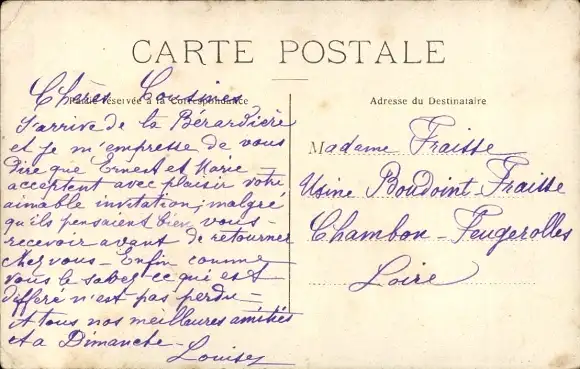 CARTE POSTALE
Partie réservée à la Correspondance
Chères Cousines
J'arrive de la Bérardière
et je m'empresse de vous
dire que Ernest et Marie -
acceptent avec plaisir votre
aimable invitation, malgré
qu'ils pensaient bien vous -
recevoir avant de retourner
chez vous - Enfin comme
vous le savez ce qui est
différé n'est pas perdu -
A tous nos meilleures amitiés
et a Dimanche -
Adresse du Destinataire
Madame Fraisse
Usine Boudoint-Fraisse
Chambon-Feugerolles
Loire